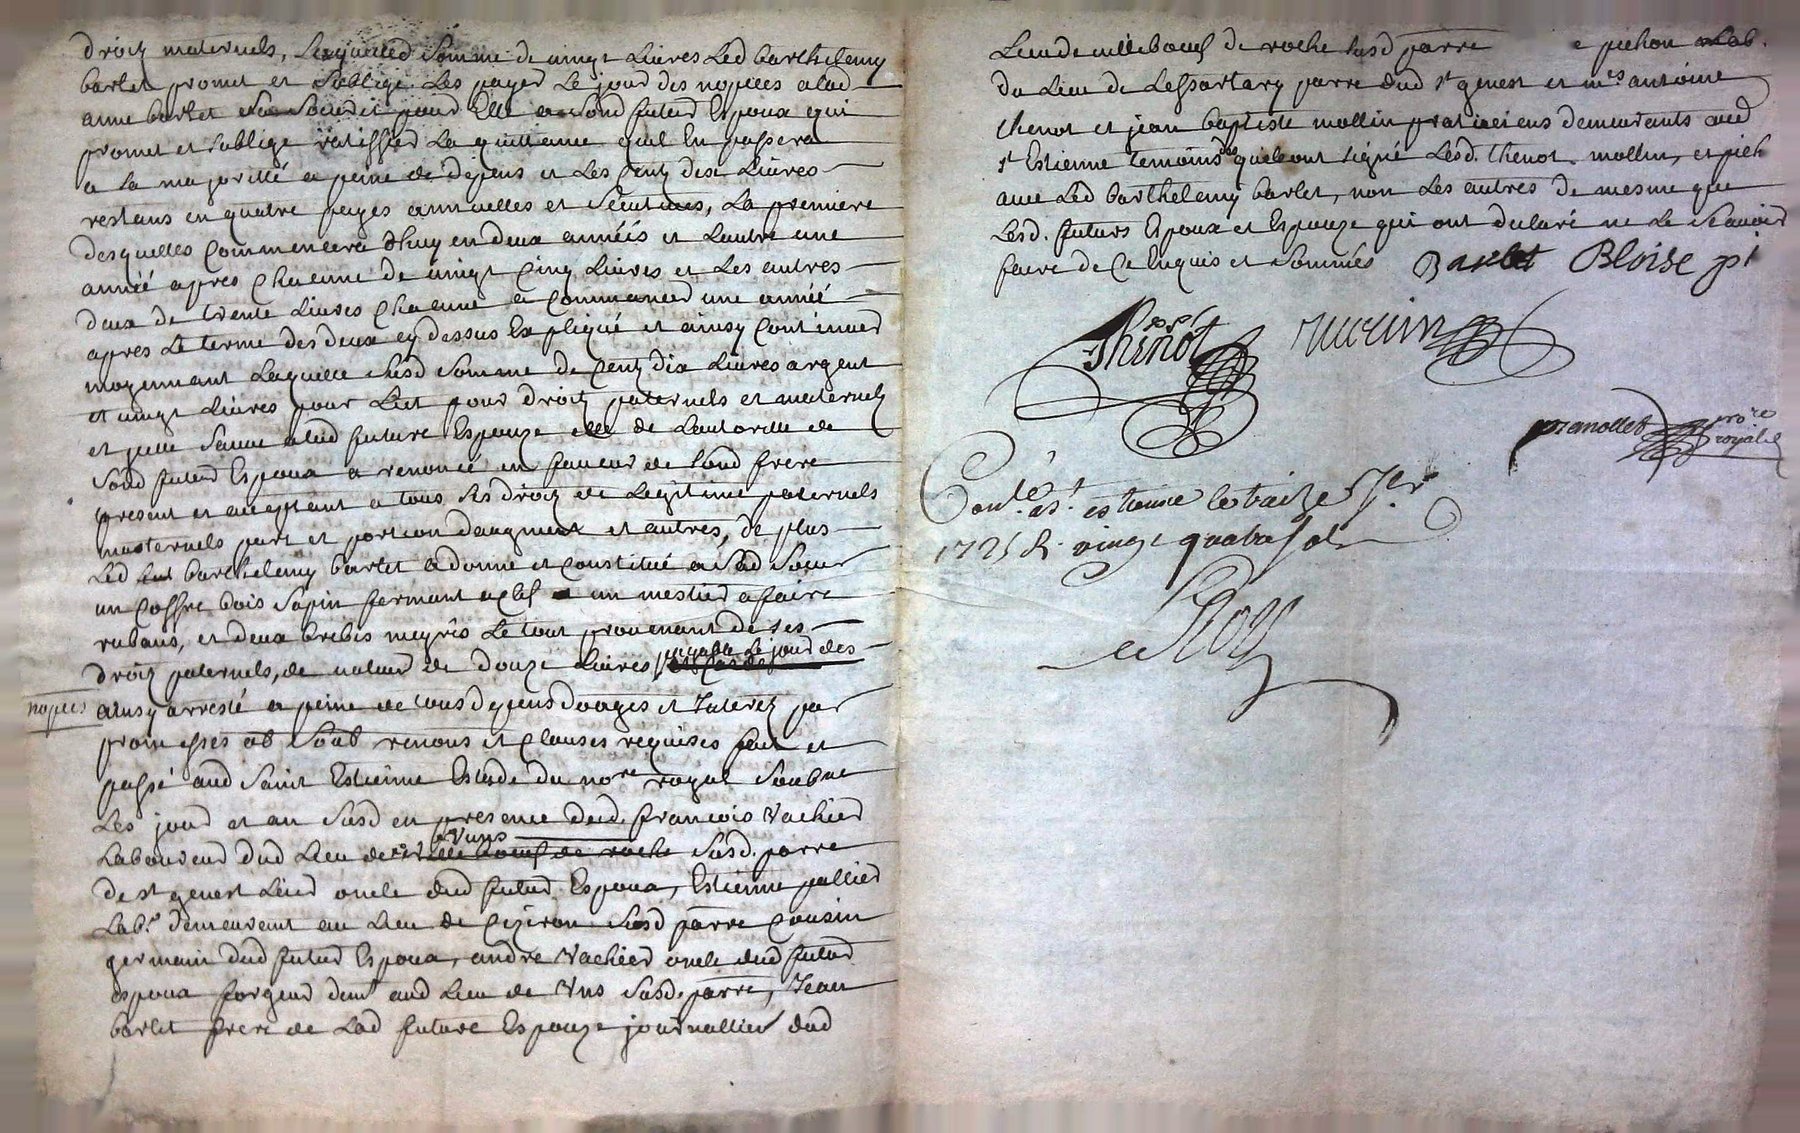 droitz maternels, Laquelle Somme de vingt Livres Led barthelemy
barlet promet et Soblige Les payer Le jour des nopces alad
anne barlet Sa Soeur et pour Elle a Sond futur Espoux qui
promet et soblige ratiffier La quittance quil En passera
a Sa majoritté a peine de depens et Les Centz dix Livres
restans en quatre payes annuelles et Secutives, La premiere
desquelles Commencera dhuy en deux années et Lautre une
année apres Chacune de vingt Cinq Livres et Les autres
deux de trente Livres Chacune a Commancer une année
apres Le terme des deux cy dessus Expliqué et ainsy Continuer
moyennant Laquelle Susd Somme de Centz dix Livres argent
et vingt Livres pour Lict pour droitz paternels et maternels
et Lad future Espouze de Lautoritté de
Sond futur Espoux a renoncé en faveur de Sond frere
present et aceptant a tous Ses droitz de Legitime paternels
masternels part et portion daugment et autres, de plus
Led barthelemy barlet a donné et Constitué a Sad Soeur
un Coffre bois Sapin fermant a clef un mestier a faire
rubans, et deux brebis le tout provenant de ses
droitz paternels, de valeur de douze Livres payable Le jour des
nopces ainsy arresté a peine de tous depens domages et Interetz par
promesses ob Soub renons et Clauses requises fait et
passé aud Saint Estienne Estude du nore royal Soubné
Les jour et an Susd en presence dud. François Vachier
Laboureur dud Lieu de Vuns Susd. parre
de st genest Lerd oncle dud futur Espoux, Estienne pallier
Labr demeurant au Lieu de Susd parre Cousin
germain dud futur Espoux, andré Vachier oncle dud futur
espoux forgeur demt aud Lieu de Vns Susd. parre, Jean
barlet frere de Lad future Espouze journallier dud
Lieu de villeboeuf de roche susd parre e pichon Lab.
du Lieu de Lessartary parre dud st genest et mes antoine
thenot et jean baptiste mollin praticiens demeurants aud
st Estienne temoins desquels ont signé Lesd. thenot. mollin, et pich
avec Led barthelemy barlet, non Les autres de mesme que
Lesd. futurs Espoux et Espouze qui ont declaré ne Le Scavoir
faire de Ce Enquis et Sommés Barlet Bloise pi
Thenot
pianollet nore royal
Conlé a st estienne le traize
1725 R. vingt quatre sols
LeRoy